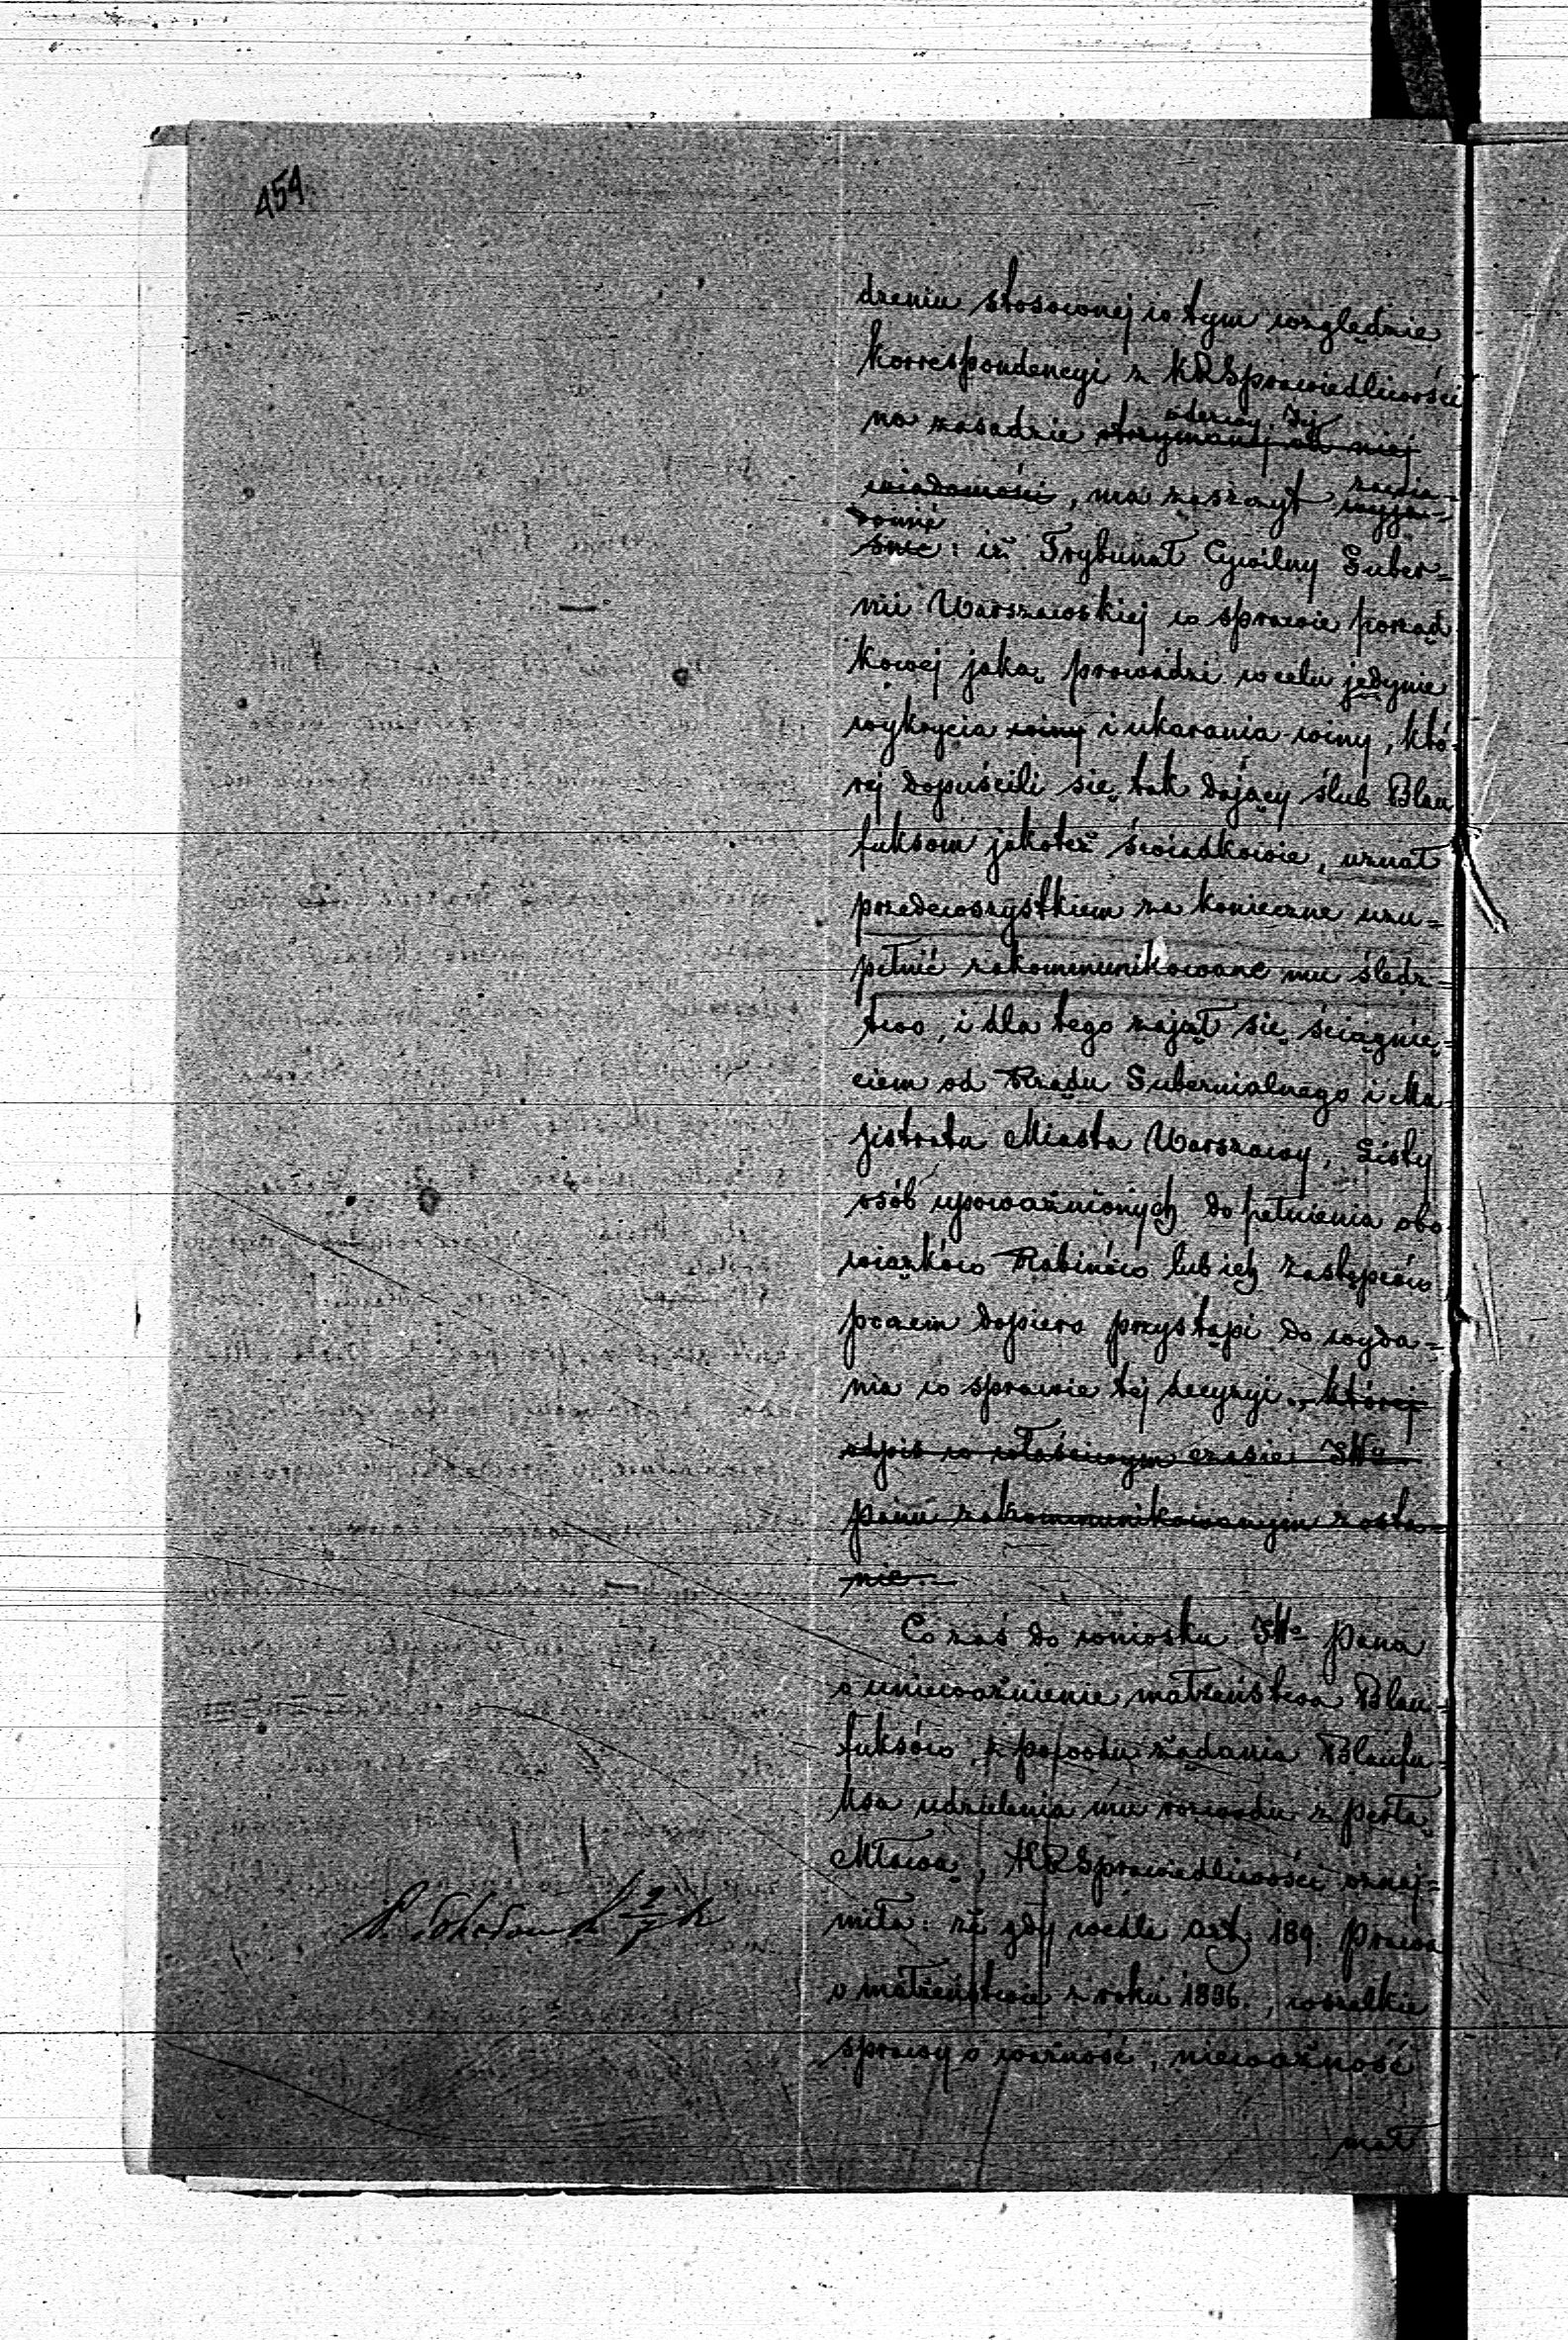 454.
dzeniu stosownej w tym względzie
korrespondencyi z KRSprawiedliwości
na zasadzie otrzymanej od niej
odezwy Jej
wiadomości, ma zaszczyt wyja-
zawia-
domić
śnić: iż Trybunał Cywilny Guber=
nii Warszawskiej w sprawie porząd
kowej jaką prowadzi w celu jedynie
wykrycia winy i ukarania winy, któ-
rej dopuścili się tak dający ślub Blau
fuksom jakoteż świadkowie, uznał
przedewszystkiem za konieczne uzu=
pełnić zakommunikowane mu śledz=
two, i dla tego zajął się ściągnię=
ciem od Rządu Gubernialnego i Ma-
gistratu Miasta Warszawy, Listy
osób upoważnionych do pełnienia obo-
wiązków Rabinów lub ich zastępców
poczem dopiero przystąpi do wyda=
nia w sprawie tej decyzyi, której
odpis w właściwym czasie JWu
panu zakommunikowanym zosta=
nie.
Co zaś do wniosku JWo pana
o unieważnienie małżeństwa Blau-
fuksów, z powodu żądania Blaufu-
ksa udzielenia mu rozwodu z Perlą
Mławą, KRSprawiedliwości oznaj=
miła: że gdy wedle art. 189. Prawa
o małżeństwie z roku 1836., wszelkie
sprawy o ważność, nieważność
mał